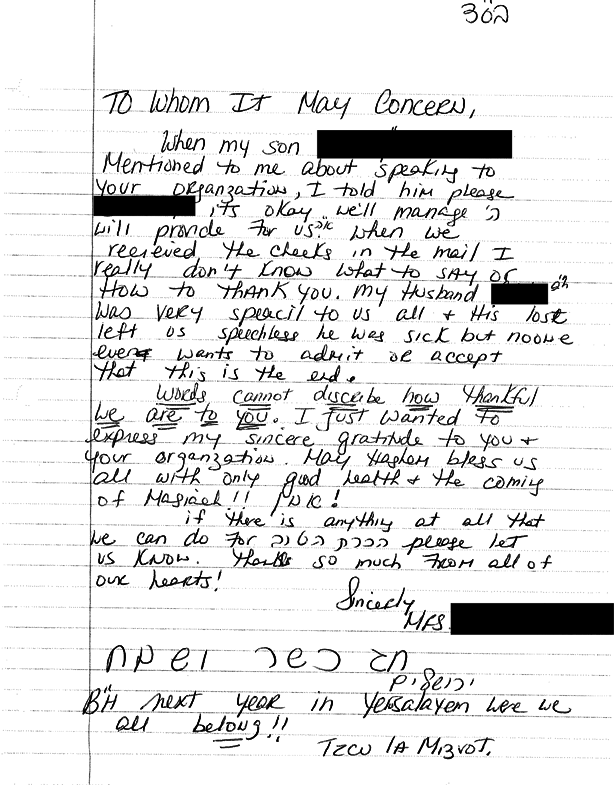 בס"ד
To Whom It May Concern,
When my son
Mentioned to me about speaking to
your organzation, I told him please
, its okay we'll manage 'ה
will provide for us. When we
receieved the checks in the mail I
really don't know what to say or
How to thank you. My Husband ע"ה
was very speacil to us all + His lost
left us speechless he was sick but noone
ever wants to admit or accept
that this is the end.
Words cannot discribe how thankful
we are to you. I just wanted to
express my sincere gratitude to you +
your organzation. May Hashem bless us
all with only good health + the coming
of Magiach!! אמן!
if there is anything at all that
we can do for הכרת הטוב please let
us know. Thanks so much from all of
our hearts!
Sincerly
Mrs.
חג כשר ושמח
ירושלים
B"H next year in Yersalayem were we
all belong!!
Tzcu la Mizvot.